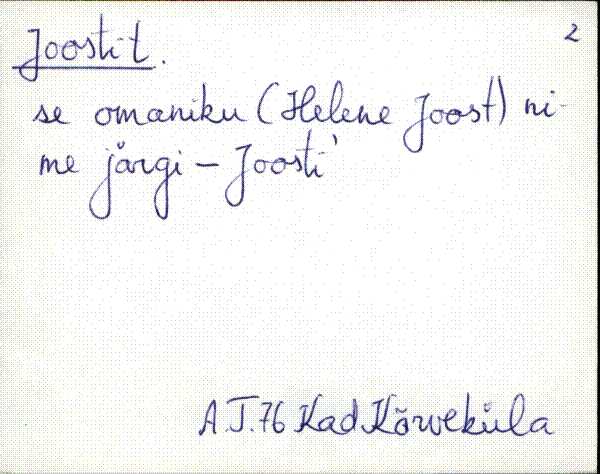 2
Joosti t.
se omaniku (Helene Joost) ni-
me järgi – Joosti'
A.T.76 Kad Kõrveküla